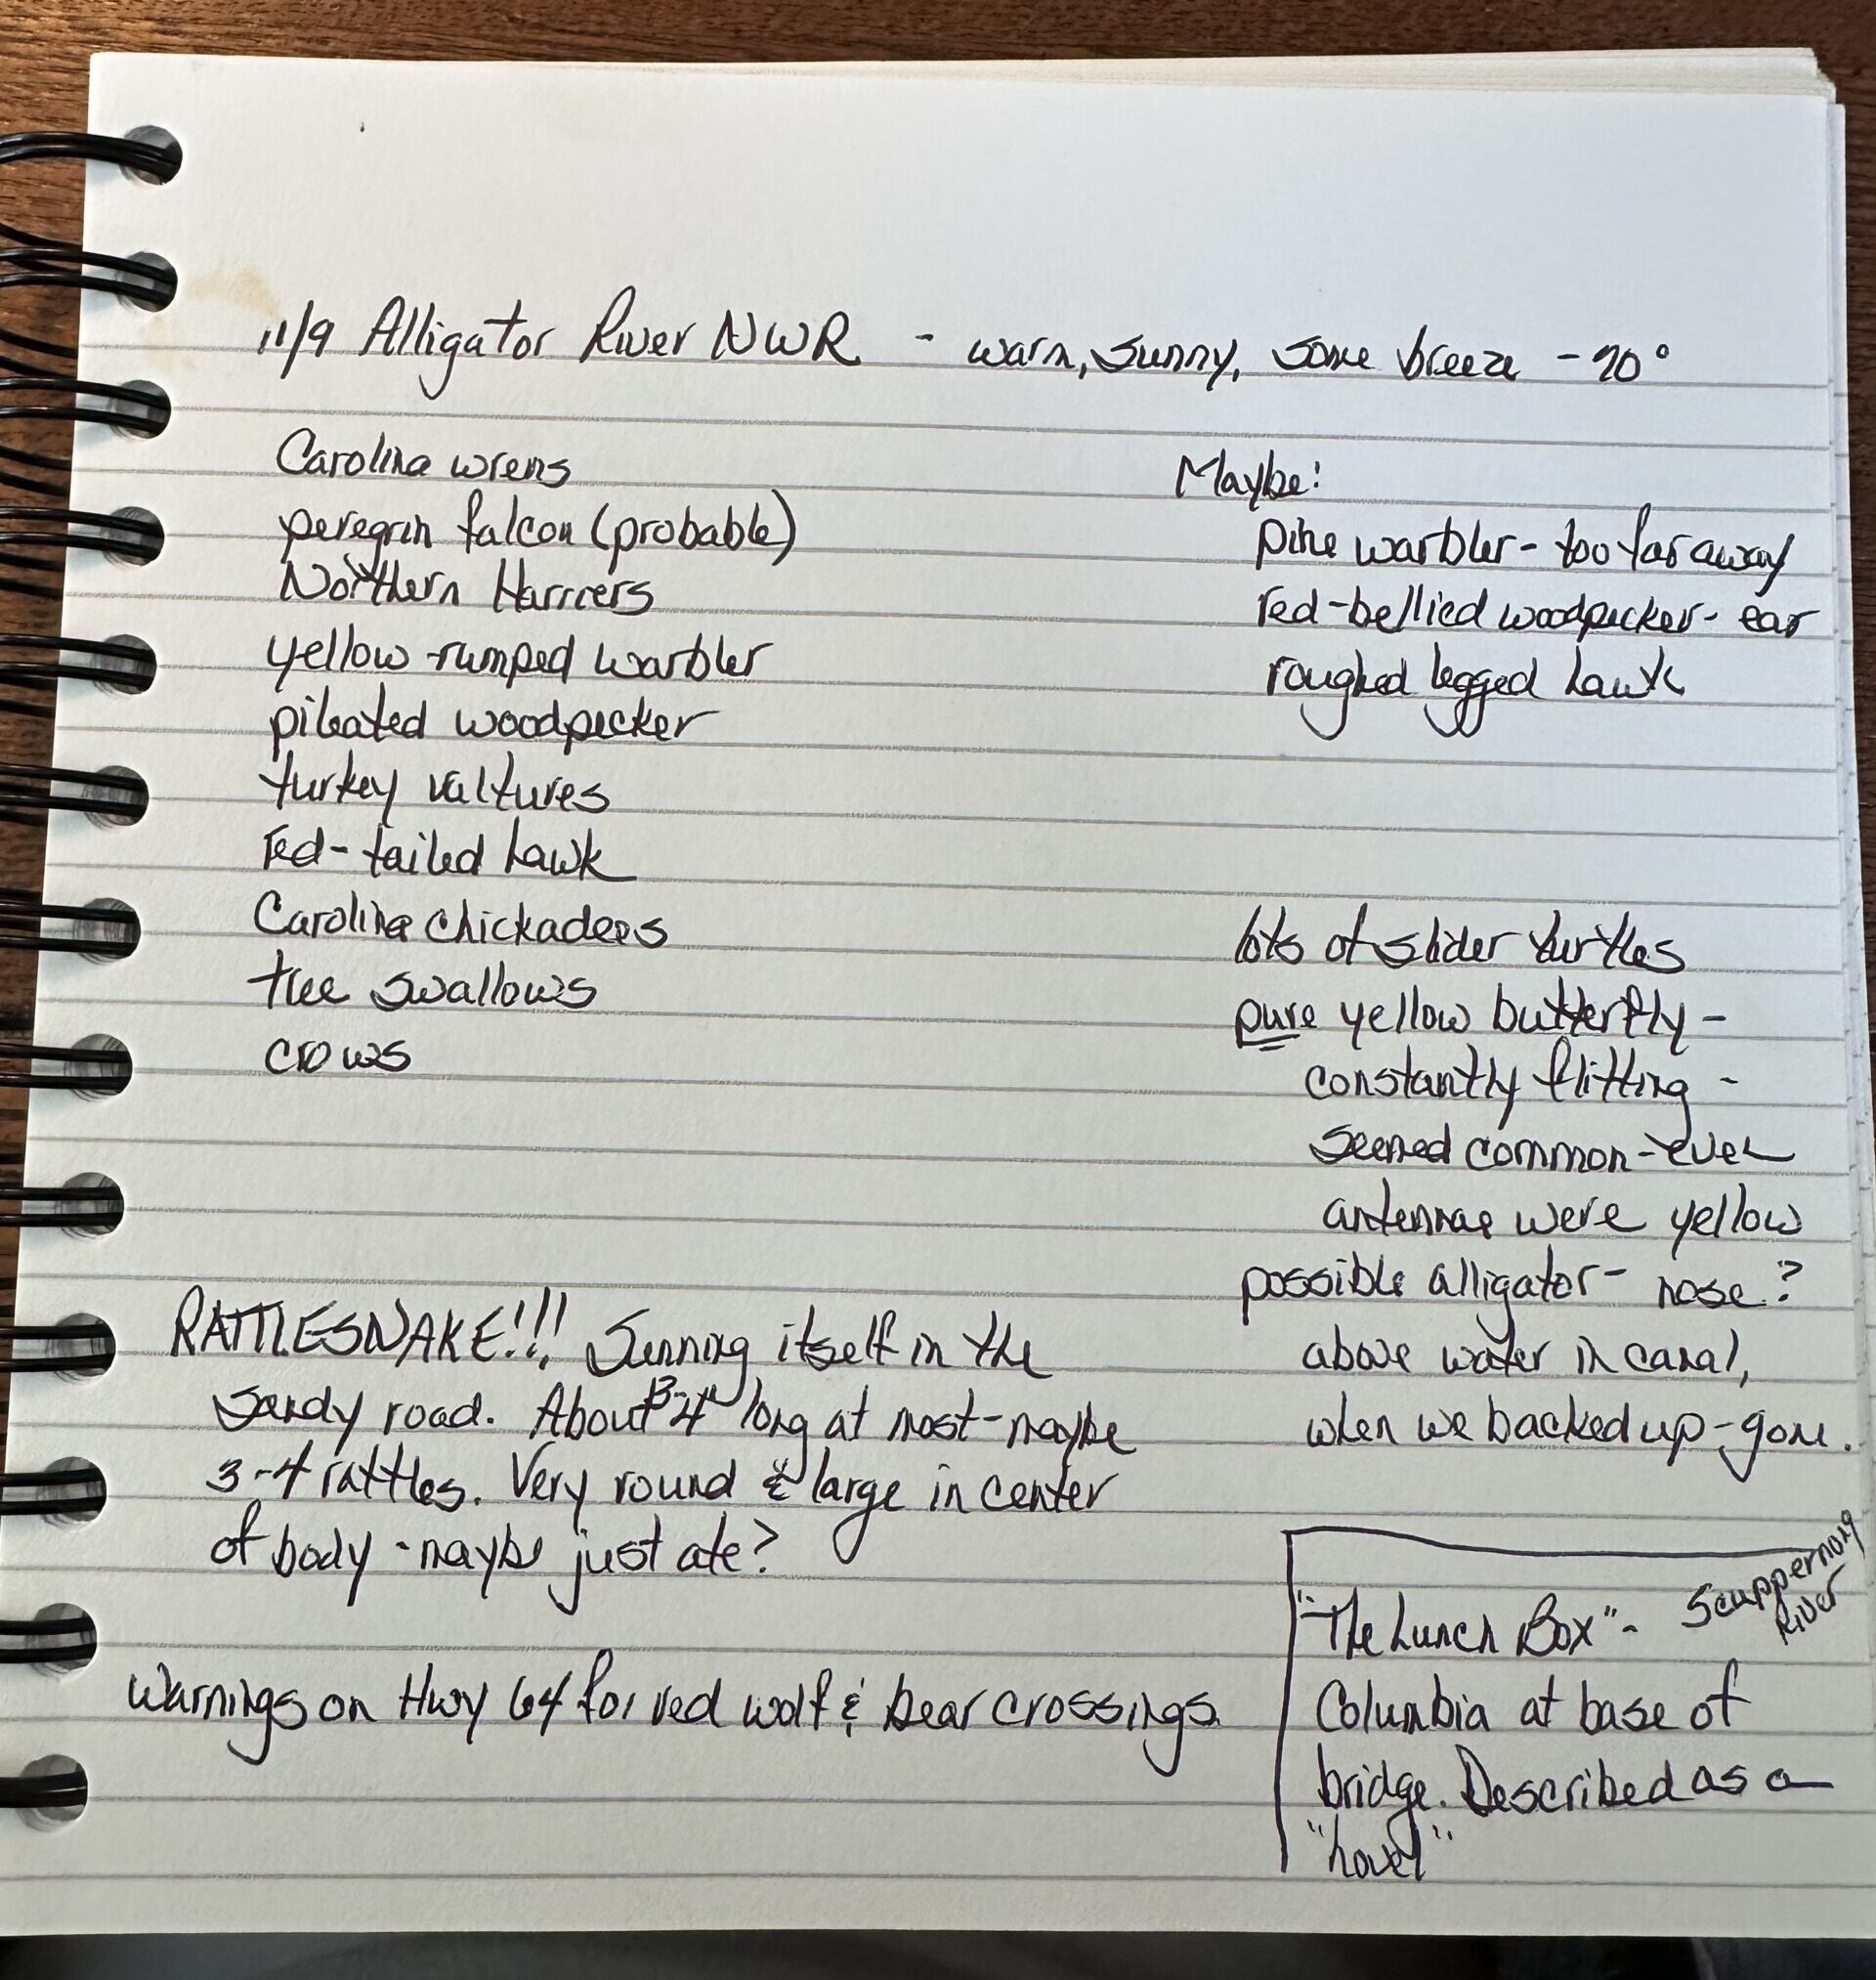 11/9 Alligator River NWR - warm, sunny, some breeze - 70°
Carolina wrens
peregrin falcon (probable)
Northern Harriers
yellow-rumped warbler
pileated woodpecker
turkey vultures
red-tailed hawk
Carolina chickadees
tree swallows
crows
Maybe:
pine warbler - too far away
red-bellied woodpecker - ear
roughed legged hawk
lots of slider turtles
pure yellow butterfly -
constantly flitting -
seemed common - even
antennae were yellow
possible alligator - nose?
above water in canal,
when we backed up - gone.
RATTLESNAKE!!! Sunning itself in the
sandy road. About 3-4' long at most - maybe
3-4 rattles. Very round & large in center
of body - maybe just ate?
Warnings on Hwy 64 for red wolf & bear crossings.
"The Lunch Box" - Scuppernong
River
Columbia at base of
bridge. Described as a
"hovel"